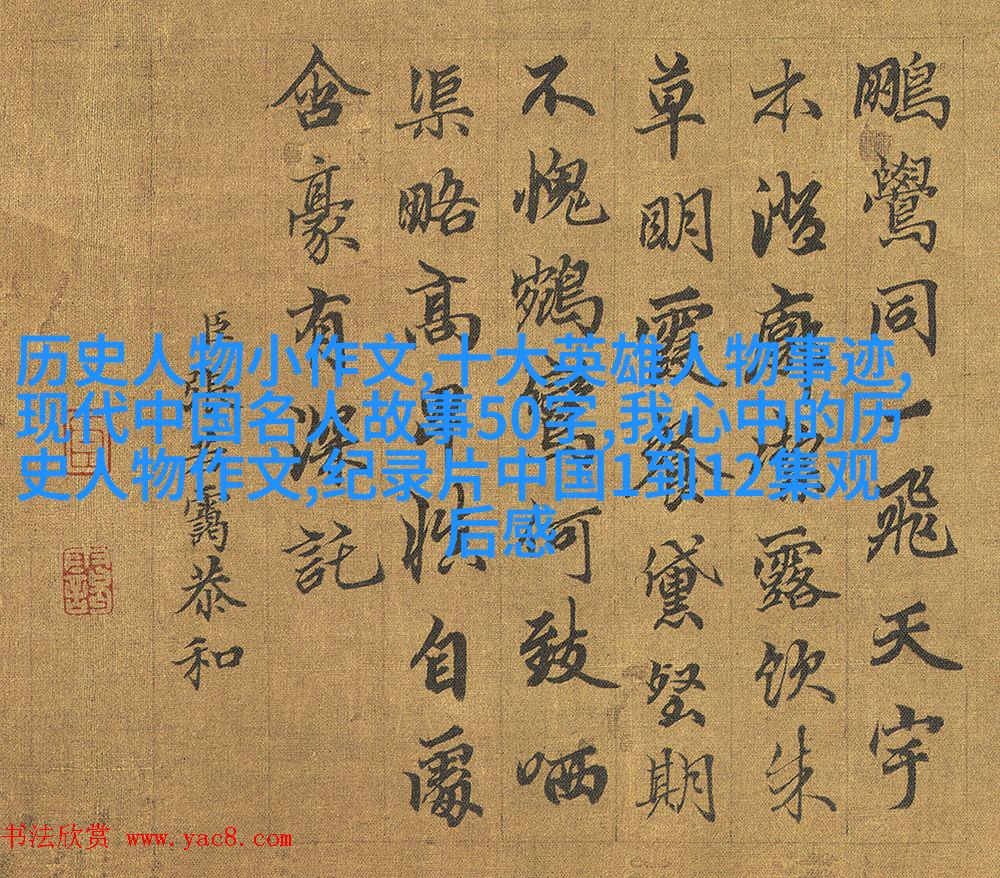 鵬鷽同一飛天宇
木澄露飲朱
草明霞餐黛壑期
不愧致哂
渠略高自處
含豪有深託
臣張若靄恭和
历史人物小作文,十大英雄人物事迹,
现代中国名人故事50字,我心中的历
史人物作文,纪录片中国1到12集观
后感
书法欣赏 www.yac8.com